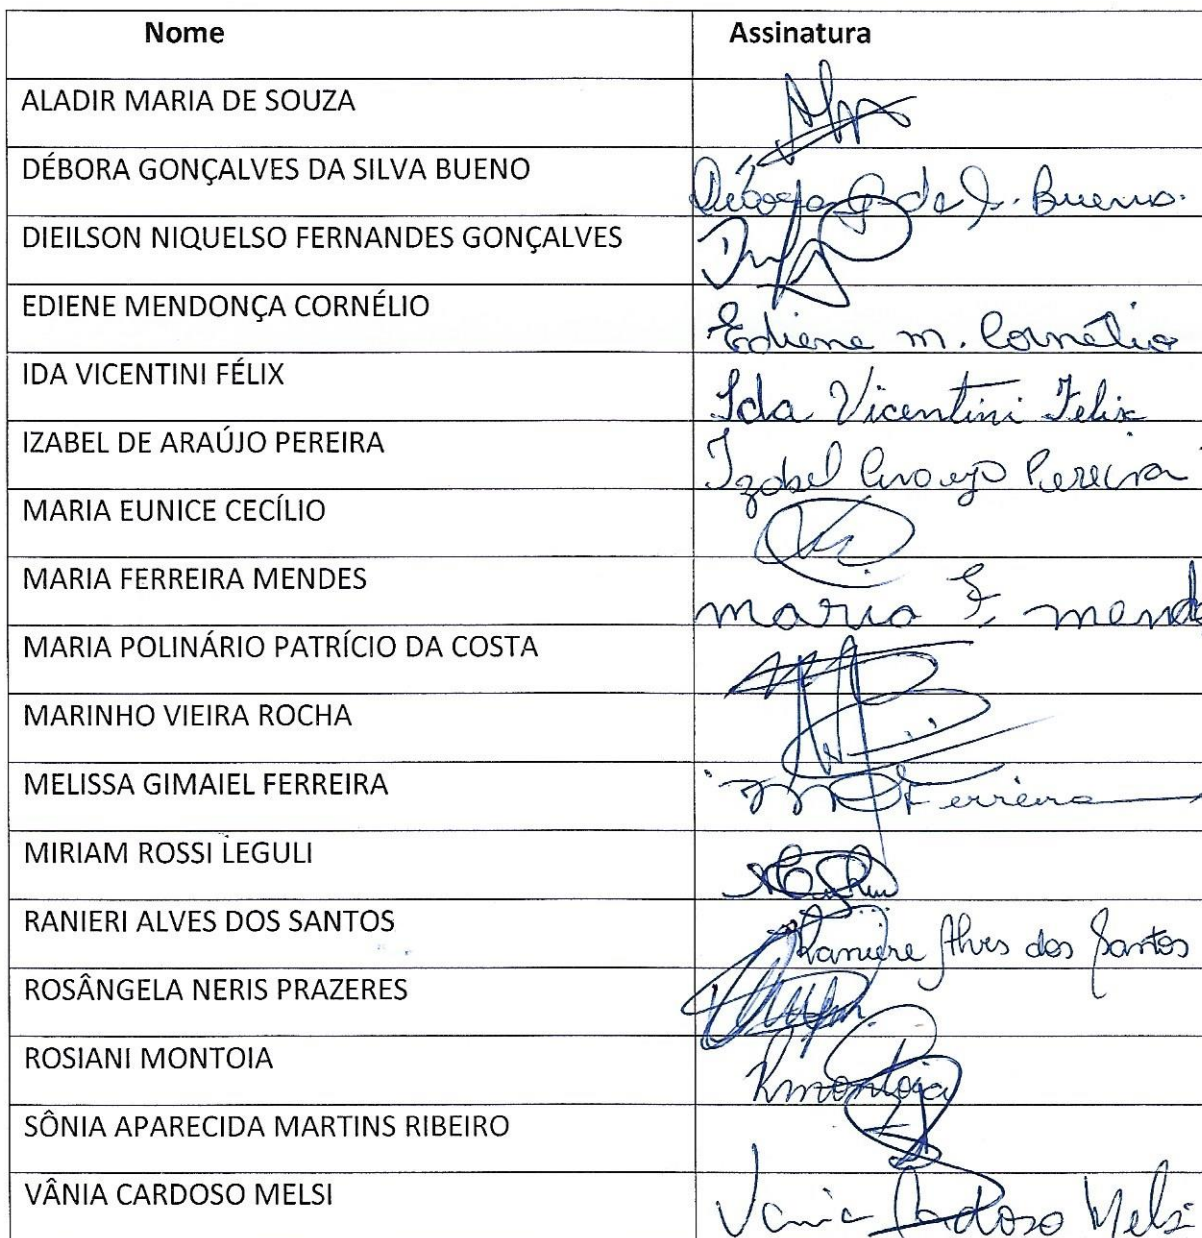 Nome Assinatura
ALADIR MARIA DE SOUZA
DÉBORA GONÇALVES DA SILVA BUENO Débora G. da S. Bueno.
DIEILSON NIQUELSO FERNANDES GONÇALVES
EDIENE MENDONÇA CORNÉLIO Ediene m. Cornélio
IDA VICENTINI FÉLIX Ida Vicentini Felix
IZABEL DE ARAÚJO PEREIRA Izabel Araujo Pereira
MARIA EUNICE CECÍLIO
MARIA FERREIRA MENDES maria F. mende
MARIA POLINÁRIO PATRÍCIO DA COSTA
MARINHO VIEIRA ROCHA
MELISSA GIMAIEL FERREIRA Ferreira
MIRIAM ROSSI LEGULI
RANIERI ALVES DOS SANTOS Raniere Alves dos Santos
ROSÂNGELA NERIS PRAZERES
ROSIANI MONTOIA Rmontoia
SÔNIA APARECIDA MARTINS RIBEIRO
VÂNIA CARDOSO MELSI Vania Cardoso Melsi